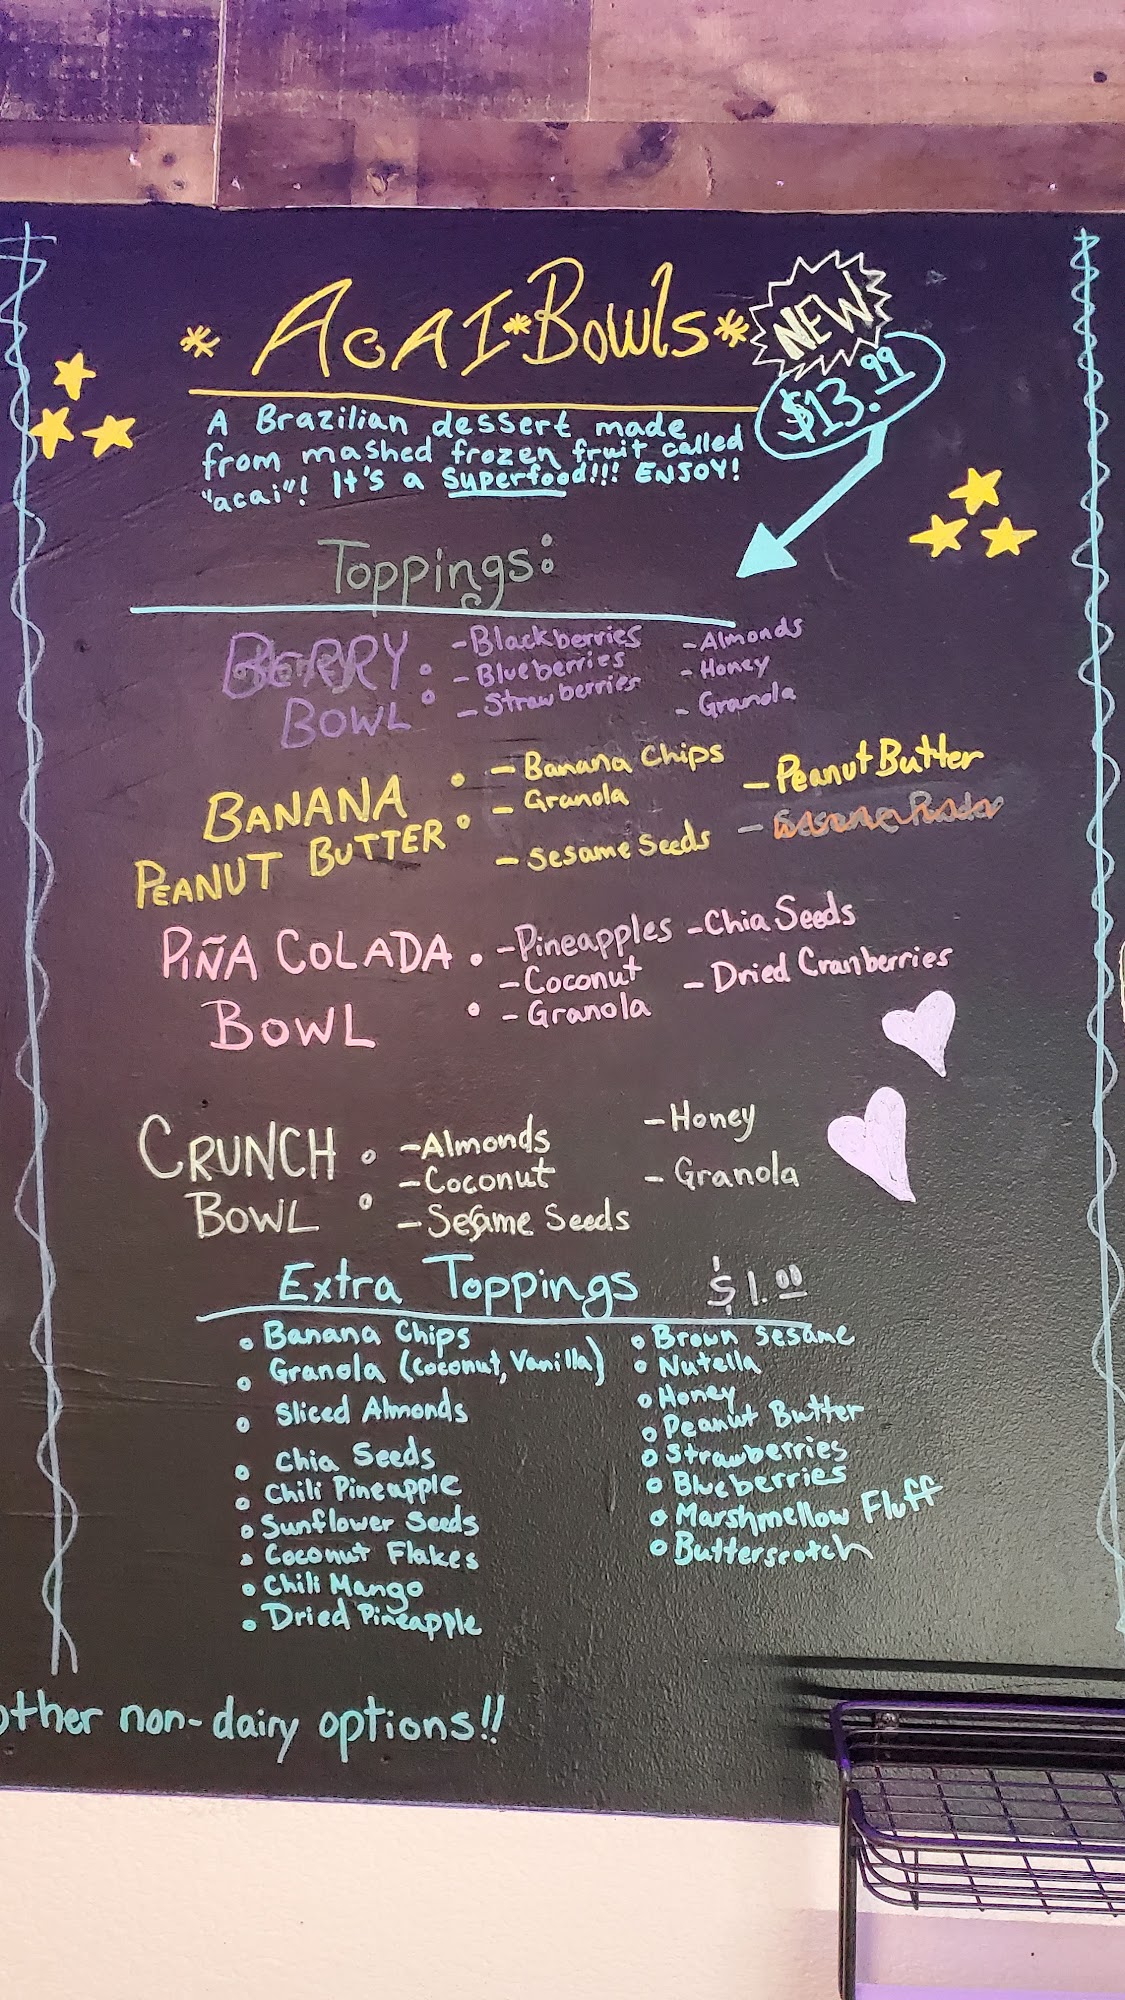 * AcAI * Bowls *
NEW
$13.99
A Brazilian dessert made
from mashed frozen fruit called
"acai"! It's a Superfood!!! ENJOY!
Toppings:
BERRY BOWL:
- Blackberries
- Blueberries
- Strawberries
- Almonds
- Honey
- Granola
BANANA
PEANUT BUTTER:
- Banana Chips
- Granola
- Sesame Seeds
- Peanut Butter
PIÑA COLADA
BOWL:
- Pineapples
- Coconut
- Granola
- Chia Seeds
- Dried Cranberries
CRUNCH
BOWL:
- Almonds
- Coconut
- Sesame Seeds
- Honey
- Granola
Extra Toppings $1.00
• Banana Chips
• Granola (Coconut, Vanilla)
• Sliced Almonds
• Chia Seeds
• Chili Pineapple
• Sunflower Seeds
• Coconut Flakes
• Chili Mango
• Dried Pineapple
• Brown sesame
• Nutella
• Honey
• Peanut Butter
• Strawberries
• Blueberries
• Marshmellow Fluff
• Butterscotch
other non-dairy options!!